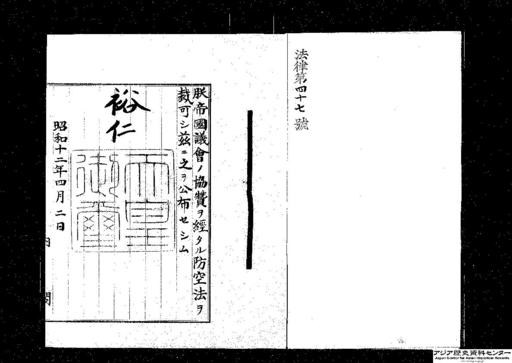 法律第四十七號
朕帝國議會ノ協贊ヲ經タル防空法ヲ
裁可シ茲ニ之ヲ公布セシム
裕仁
天皇
御璽
昭和十二年四月二日
アジア歴史資料センター
Japan Center for Asian Historical Records